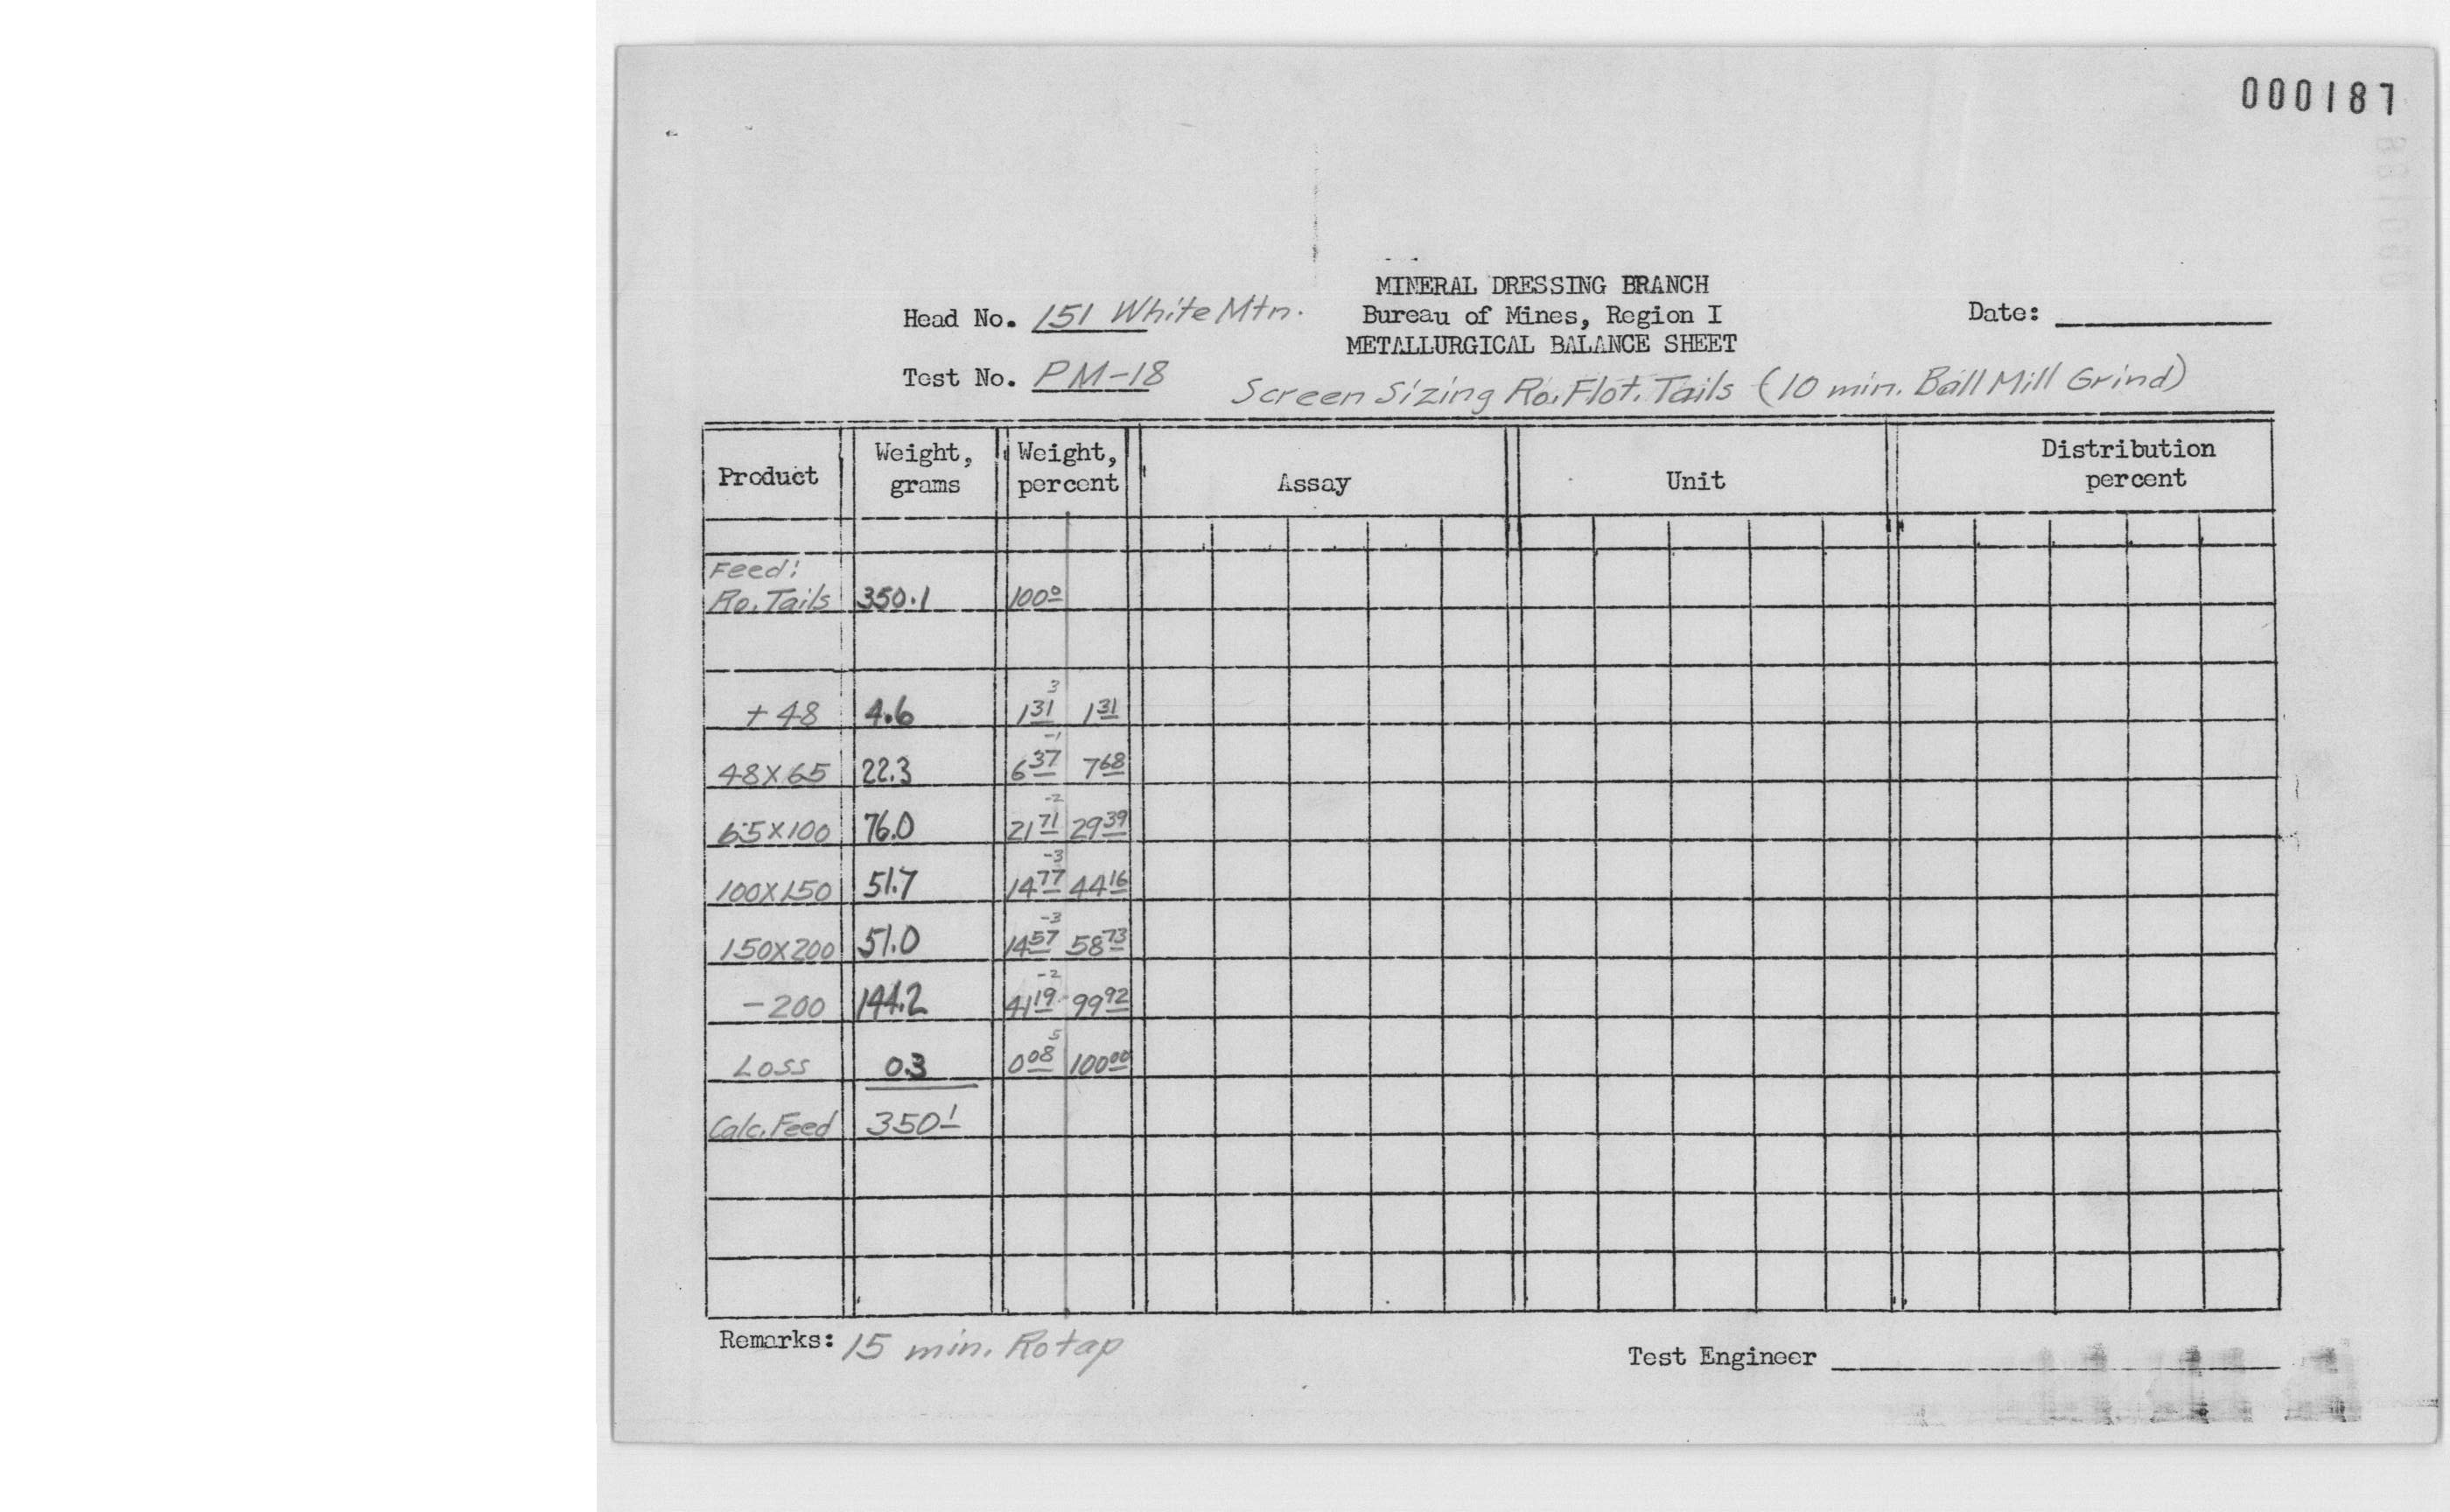 000187
MINERAL DRESSING BRANCH
Head No. 151 White Mtn. Bureau of Mines, Region I Date:
METALLURGICAL BALANCE SHEET
Test No. PM-18 Screen Sizing Ro. Flot. Tails (10 min. Ball Mill Grind)
Product Weight, grams Weight, percent Assay Unit Distribution percent
Feed:
Ro. Tails 350.1 100 0
3
+ 48 4.6 1 31 1 31
-1
48 X 65 22.3 6 37 7 68
-2
65 X 100 76.0 21 71 29 39
-3
100 X 150 51.7 14 77 44 16
-3
150 X 200 51.0 14 57 58 73
-2
- 200 144.2 41 19 99 92
5
Loss 0.3 0 08 100 00
Calc. Feed 350 1
Remarks: 15 min. Rotap
Test Engineer